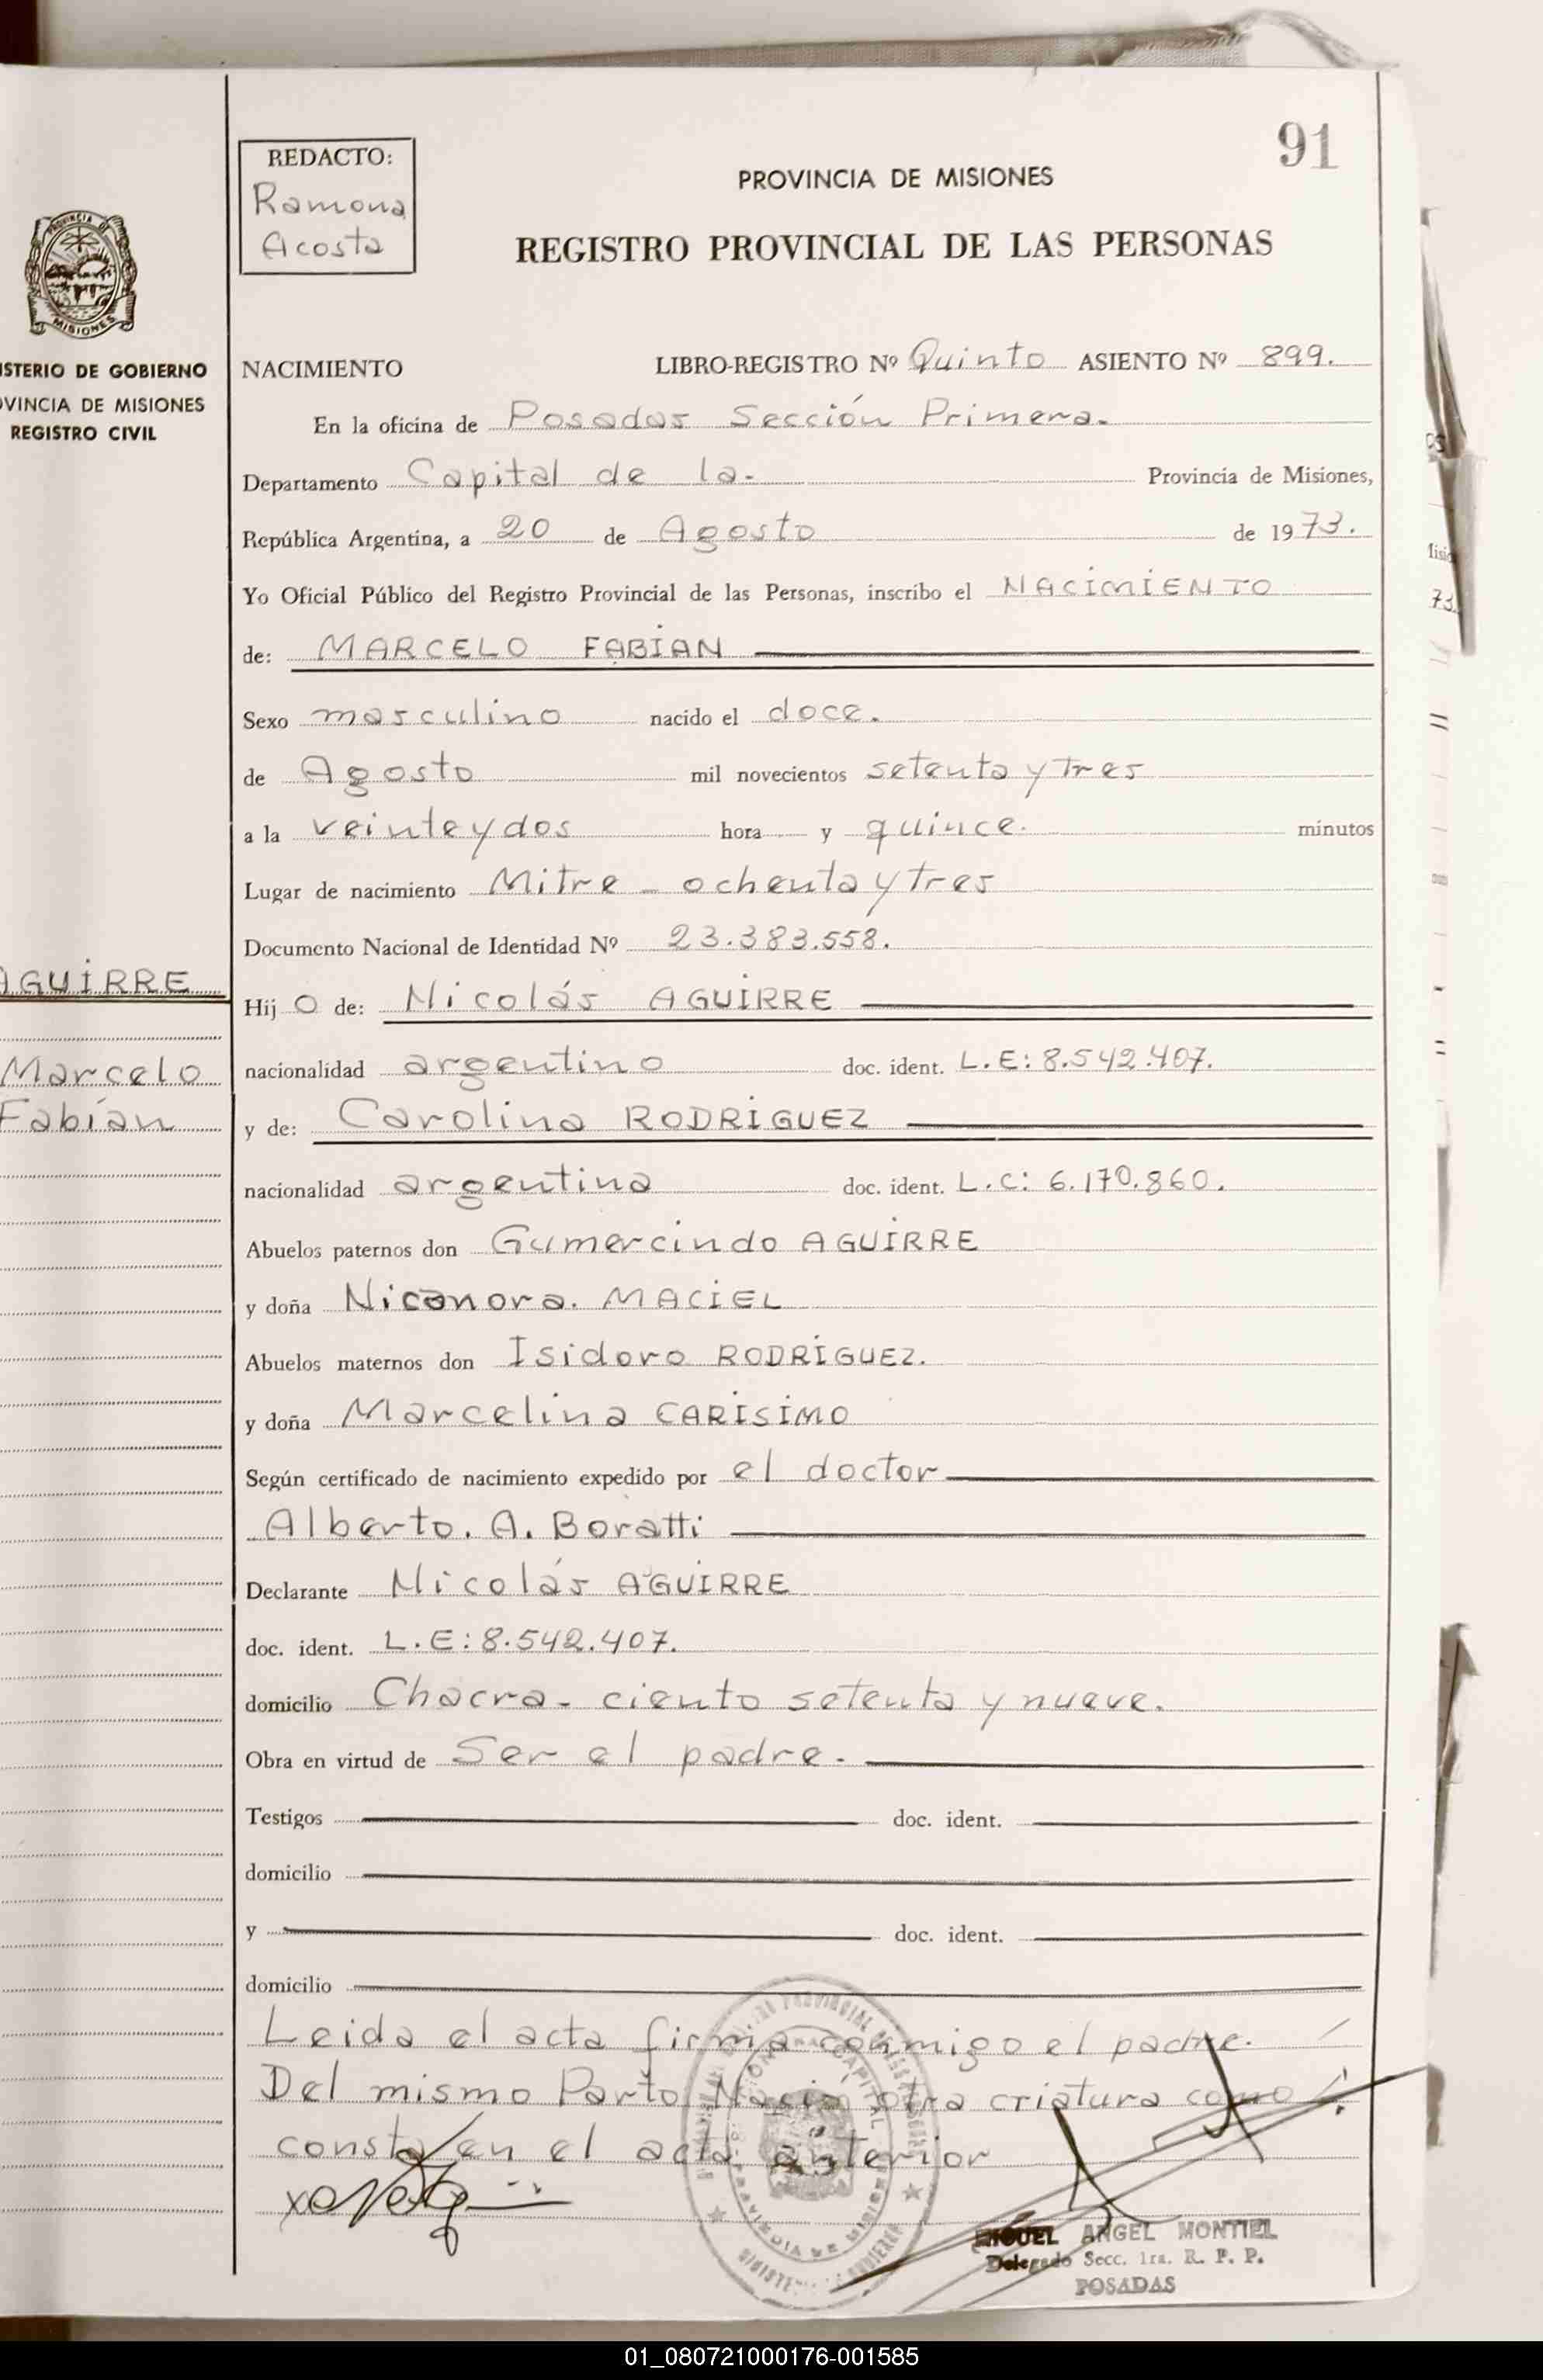 91
REDACTO:
Ramona
Acosta
PROVINCIA DE MISIONES
REGISTRO PROVINCIAL DE LAS PERSONAS
PROVINCIA DE
MISIONES
ISTERIO DE GOBIERNO
OVINCIA DE MISIONES
REGISTRO CIVIL
AGUIRRE
Marcelo
Fabián
NACIMIENTO LIBRO-REGISTRO Nº Quinto ASIENTO Nº 899.
En la oficina de Posadas Sección Primera.
Departamento Capital de la. Provincia de Misiones,
República Argentina, a 20 de Agosto de 1973.
Yo Oficial Público del Registro Provincial de las Personas, inscribo el NACIMIENTO
de: MARCELO FABIAN
Sexo masculino nacido el doce.
de Agosto mil novecientos setenta y tres
a la veinteydos hora y quince. minutos
Lugar de nacimiento Mitre - ochenta y tres
Documento Nacional de Identidad Nº 23.383.558.
Hij O de: Nicolás AGUIRRE
nacionalidad argentino doc. ident. L.E: 8.542.407.
y de: Carolina RODRIGUEZ
nacionalidad argentina doc. ident. L.C: 6.170.860.
Abuelos paternos don Gumercindo AGUIRRE
y doña Nicanora. MACIEL
Abuelos maternos don Isidoro RODRIGUEZ.
y doña Marcelina CARISIMO
Según certificado de nacimiento expedido por el doctor
Alberto. A. Boratti
Declarante Nicolás AGUIRRE
doc. ident. L.E: 8.542.407.
domicilio Chacra - ciento setenta y nueve.
Obra en virtud de Ser el padre.
Testigos doc. ident.
domicilio
y doc. ident.
domicilio
Leida el acta firma conmigo el padre.
Del mismo Parto Nacio otra criatura como
consta en el acta anterior
MIGUEL ANGEL MONTIEL
Delegado Secc. 1ra. R. P. P.
POSADAS
01_080721000176-001585